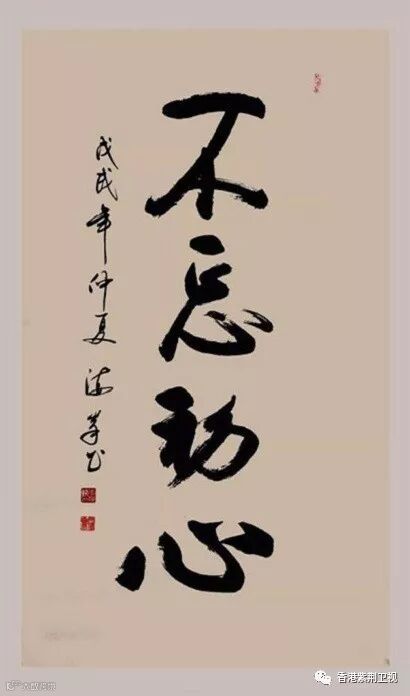 不忘初心
戊戌年仲夏
香港紫荆卫视